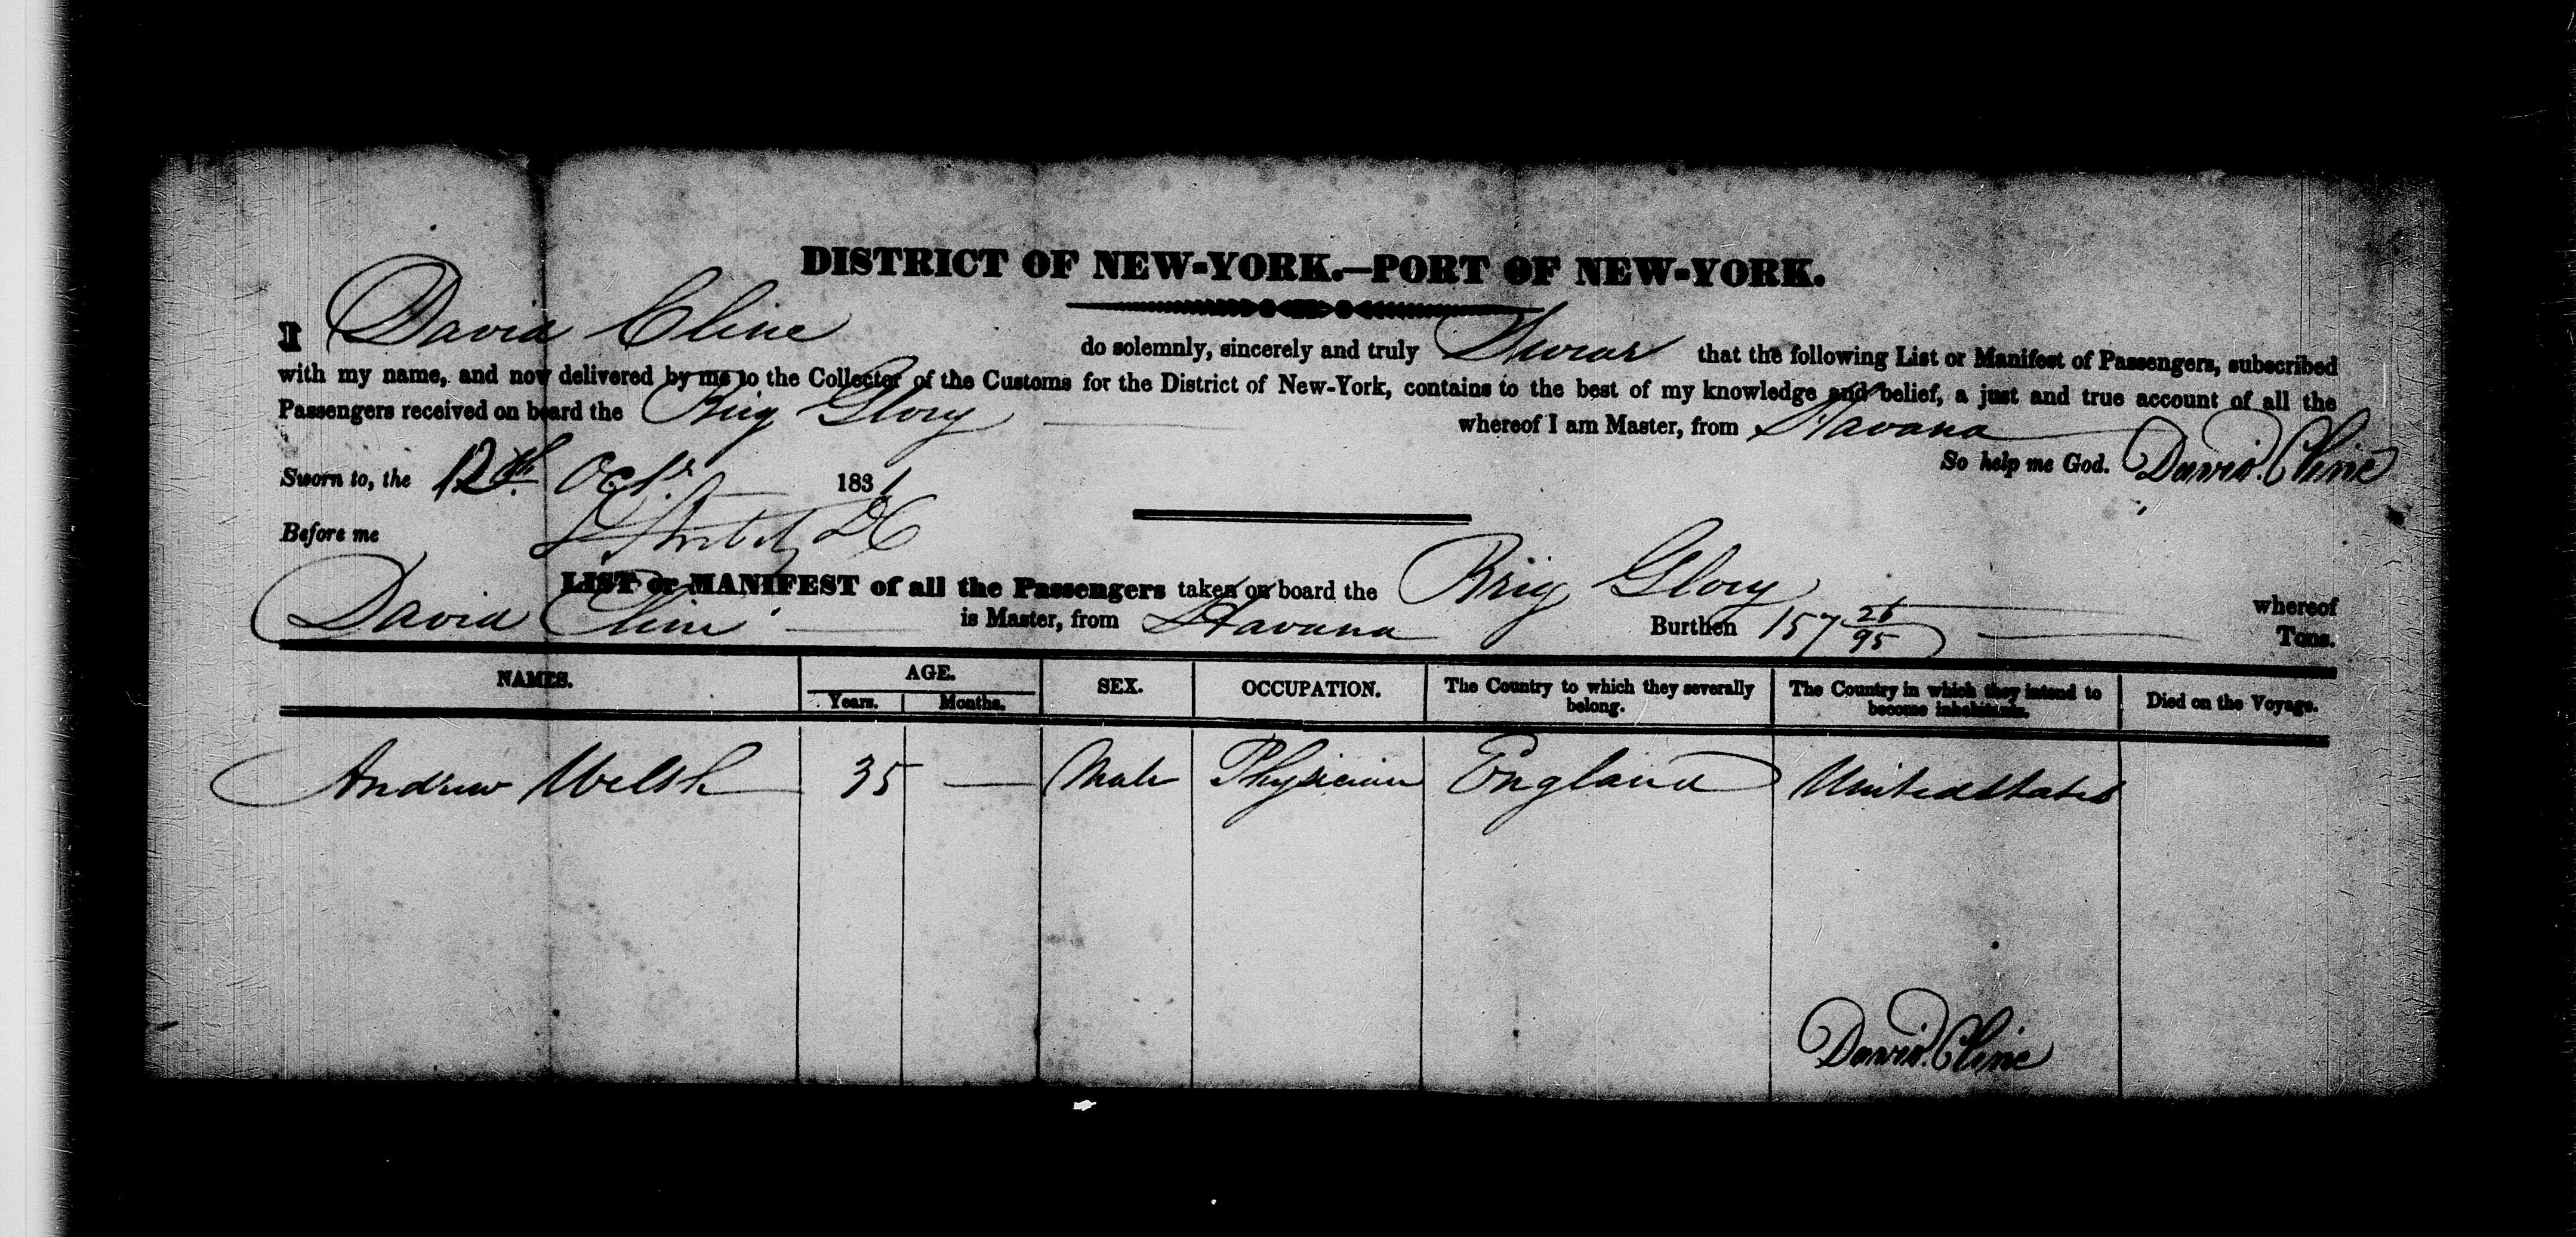 DISTRICT OF NEW-YORK.—PORT OF NEW-YORK.
I David Cline do solemnly, sincerely and truly Swear that the following List or Manifest of Passengers, subscribed
with my name, and now delivered by me to the Collector of the Customs for the District of New-York, contains to the best of my knowledge and belief, a just and true account of all the
Passengers received on board the Brig Glory whereof I am Master, from Havana
So help me God. David Cline
Sworn to, the 12th Octr 1831
Before me
LIST or MANIFEST of all the Passengers taken on board the Brig Glory whereof
David Cline is Master, from Havana Burthen 157 26/95 Tons.
NAMES. AGE. SEX. OCCUPATION. The Country to which they severally belong. The Country in which they intend to become inhabitants. Died on the Voyage.
Years. Months.
Andrew Welsh 35 — Male Physician England United States
David Cline